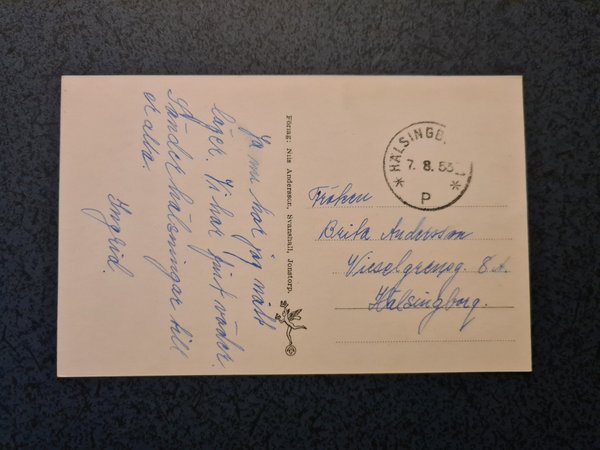 Ja nu har jag nått
läger. Vi har fint väder.
Sänder hälsningar till
er alla.
Ingrid.
Förlag: Nils Andersson, Svanshall, Jonstorp.
HÄLSINGB
7. 8. 53
P
Fröken
Brita Andersson
Vieselgrensg. 8 A.
Hälsingborg.